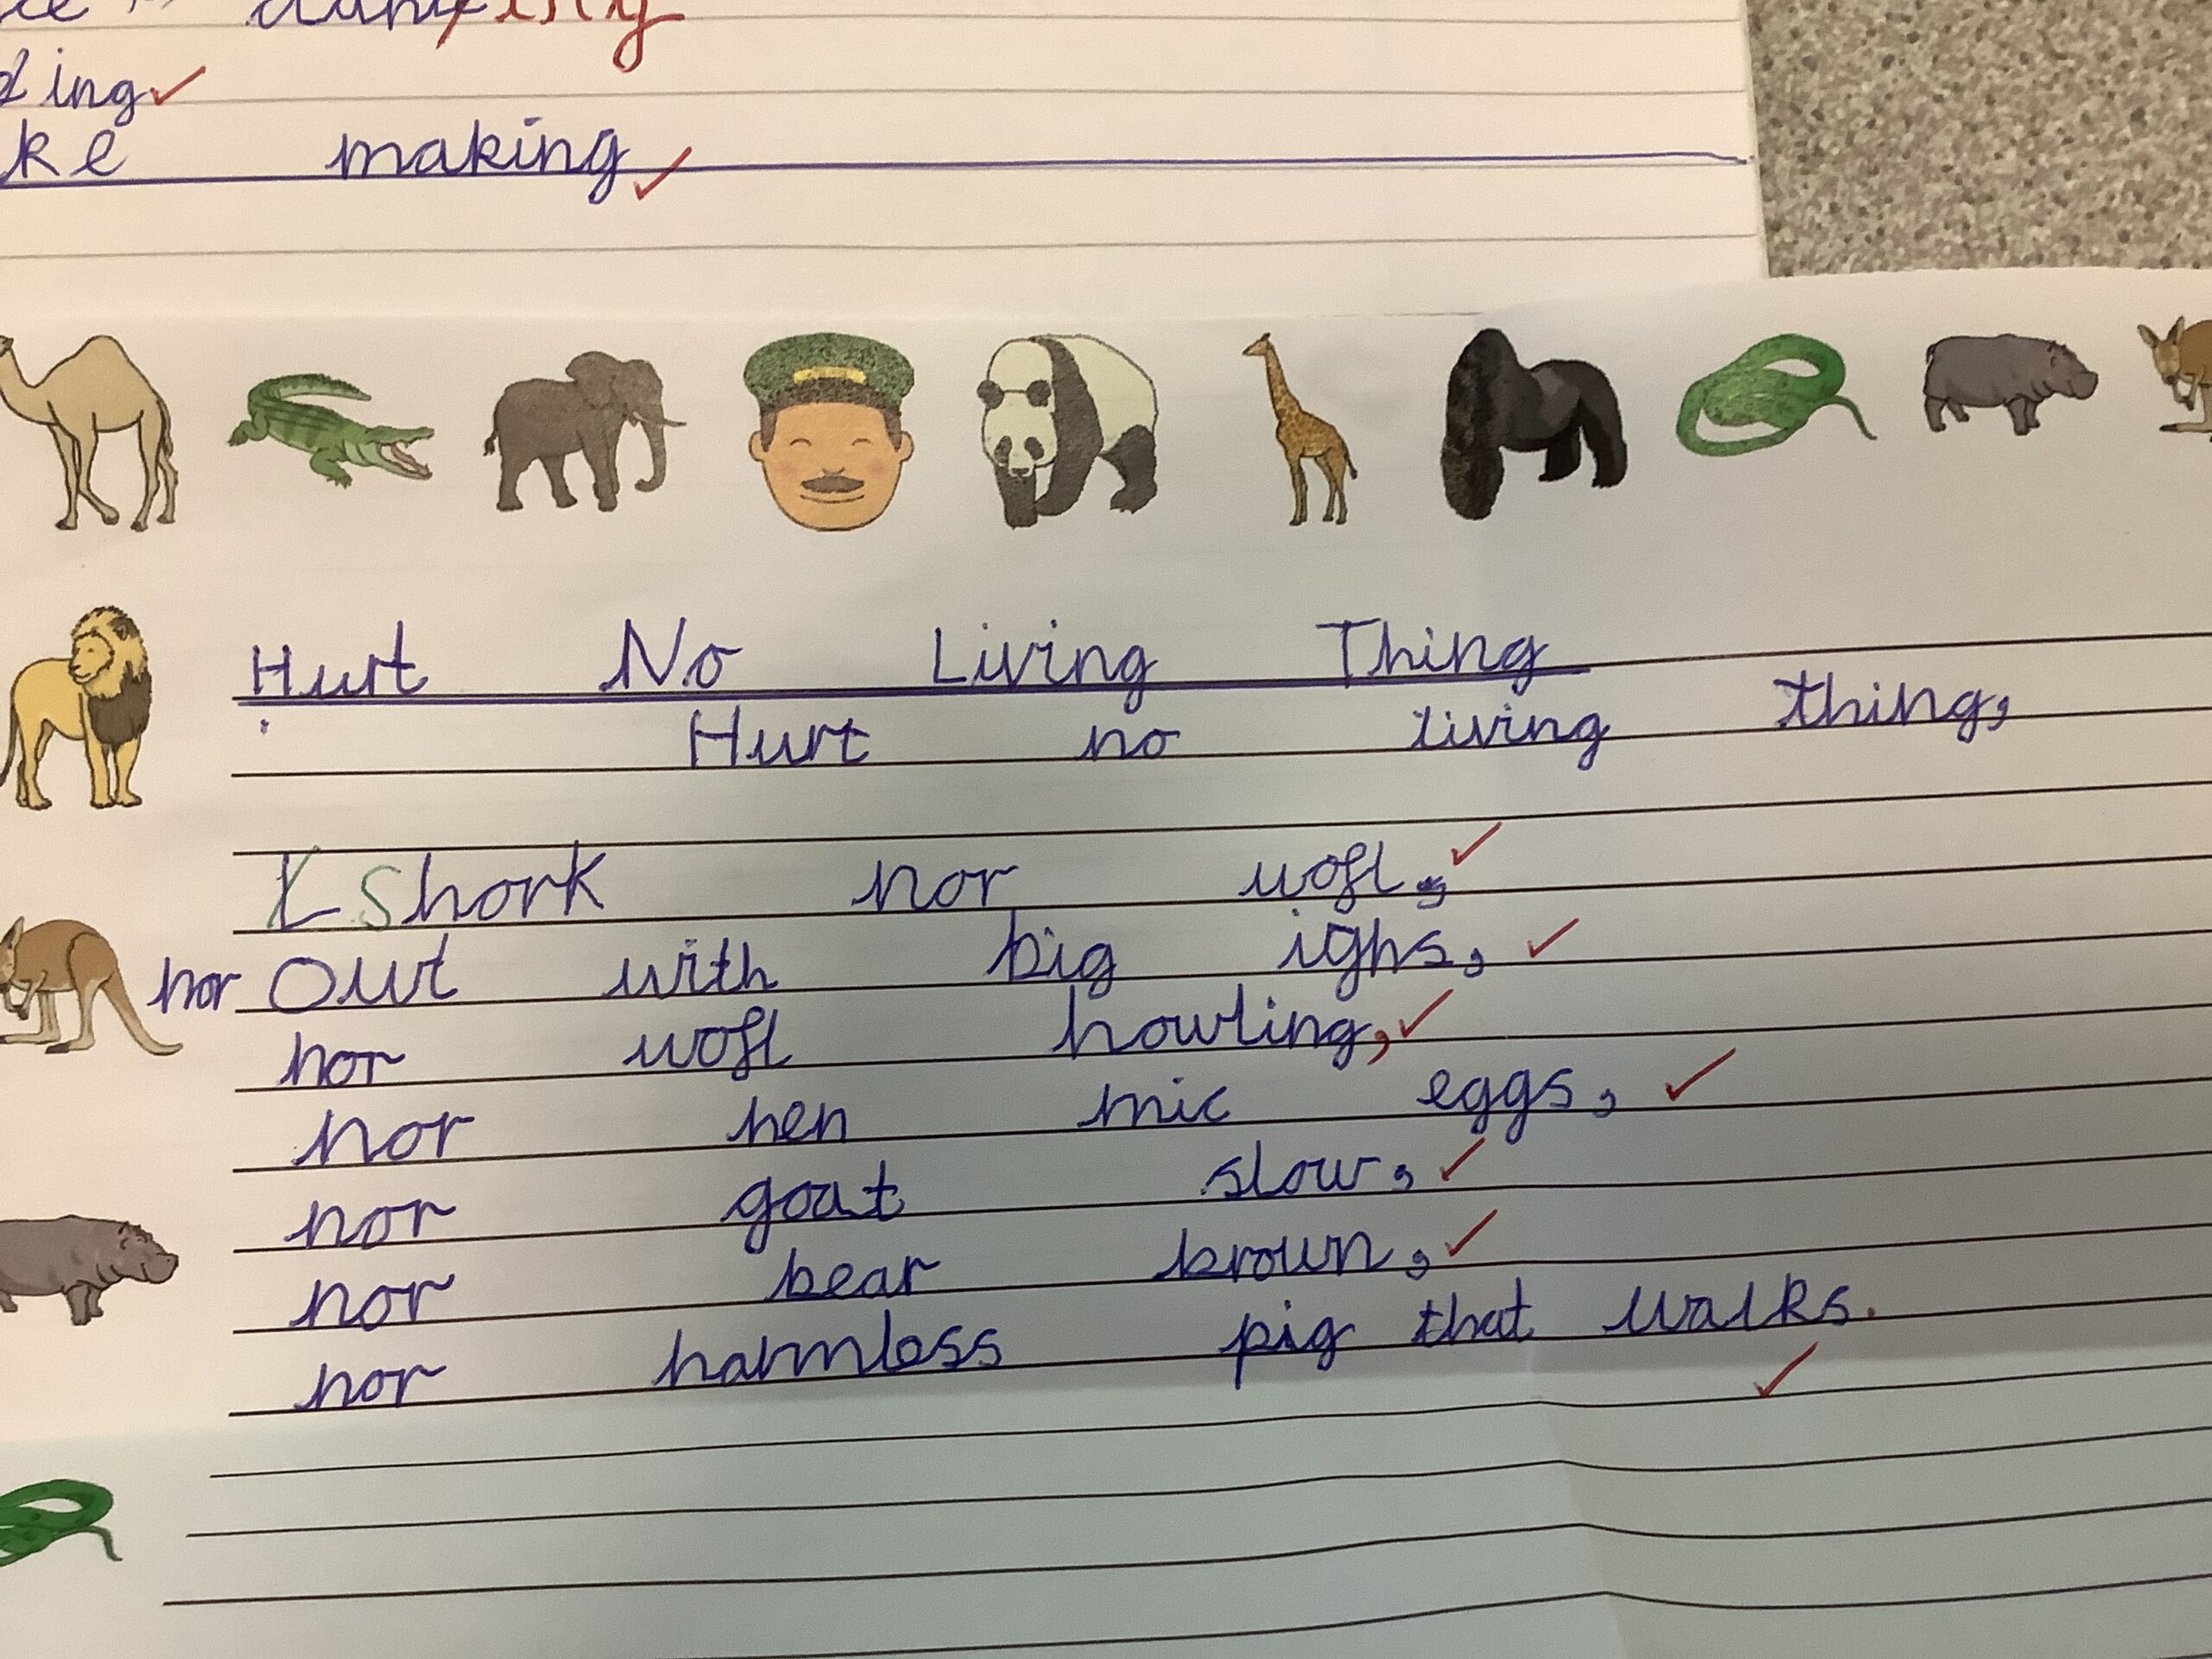 ding
ke making
Hurt No Living Thing
Hurt no living thing,
Shork nor wofl,
nor Out with big ighs,
nor wofl howling,
nor hen mic eggs,
nor goat slow,
nor bear brown,
nor harmless pig that walks.